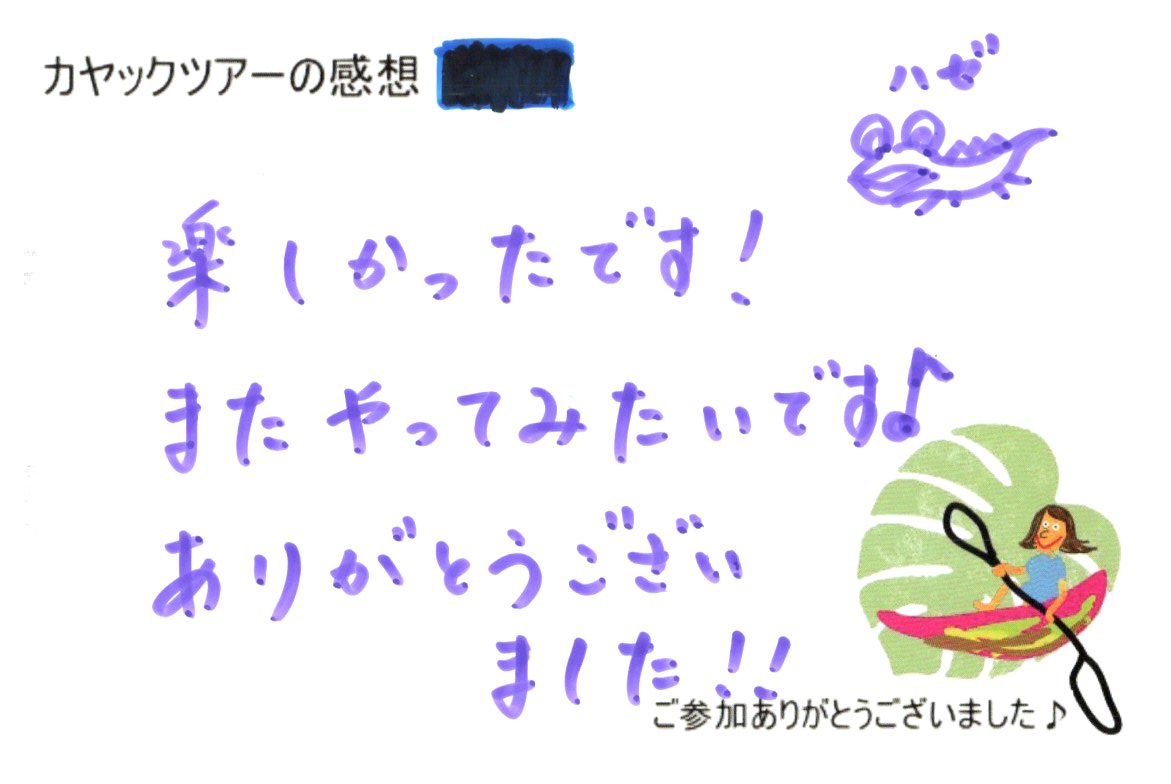 カヤックツアーの感想
ハゼ
楽しかったです!
またやってみたいです♪
ありがとうござい
ました!!
ご参加ありがとうございました♪